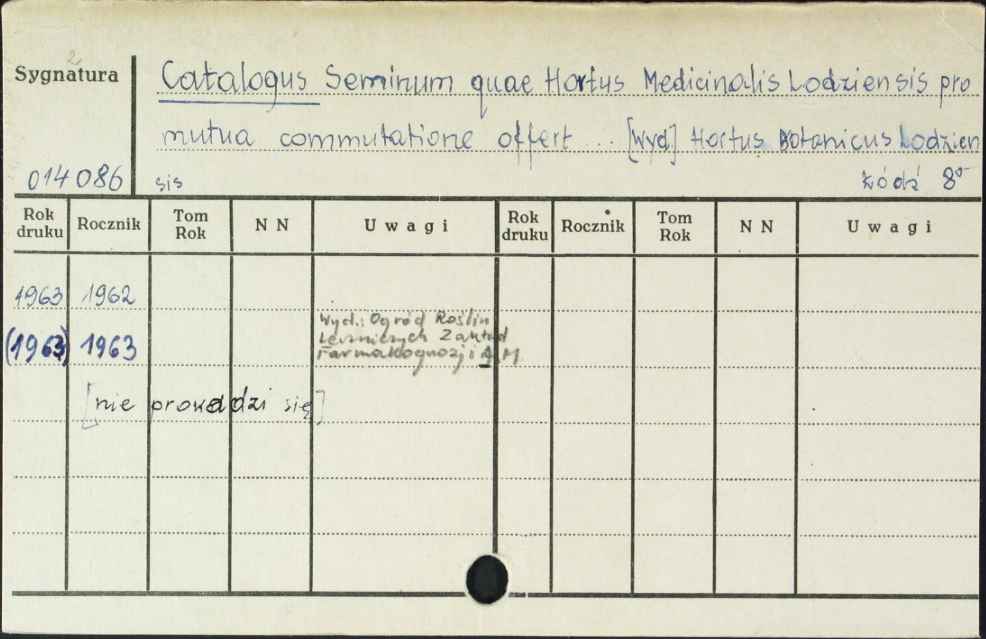 2
Sygnatura
Catalogus Seminum quae Hortus Medicinalis Lodziensis pro
mutua commutatione offert ... [wyd] Hortus Botanicus Lodzien
014086 sis Łódź 8°
Rok druku Rocznik Tom Rok N N Uwagi Rok druku Rocznik Tom Rok N N Uwagi
1963 1962
Wyd.: Ogród Roślin
Leczniczych Zakład
(1963) 1963 Farmakognozji A.M
[nie prowadzi się]